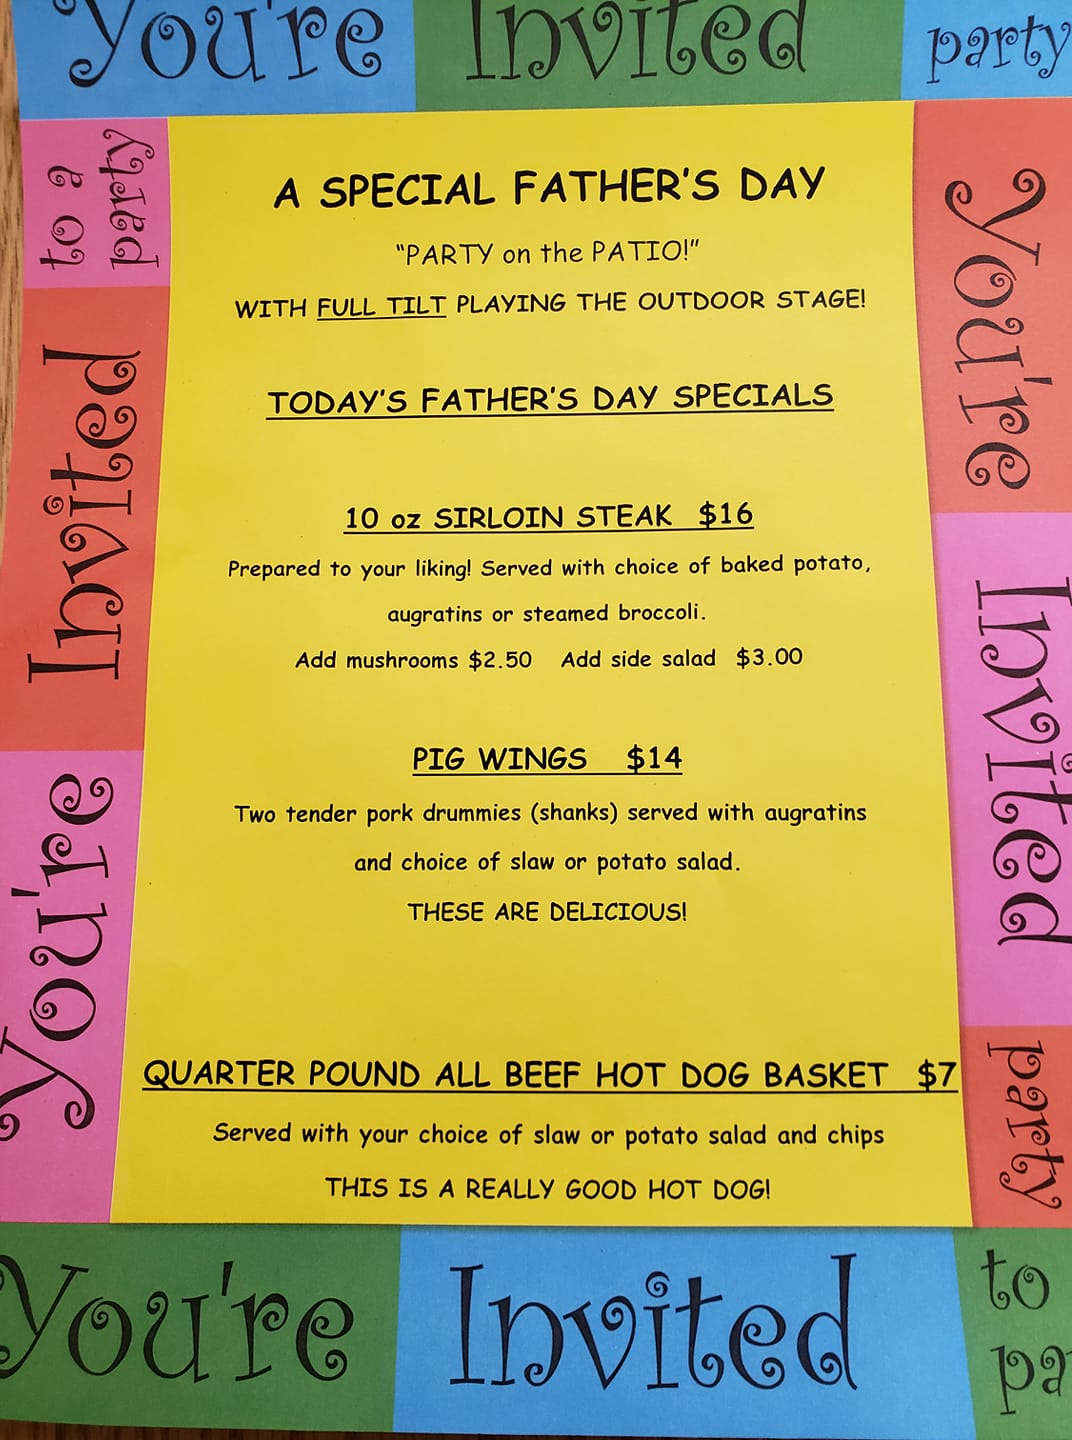 You're Invited party
to a
party
Invited
You're
A SPECIAL FATHER'S DAY
“PARTY on the PATIO!”
WITH FULL TILT PLAYING THE OUTDOOR STAGE!
TODAY'S FATHER'S DAY SPECIALS
10 oz SIRLOIN STEAK $16
Prepared to your liking! Served with choice of baked potato,
augratins or steamed broccoli.
Add mushrooms $2.50 Add side salad $3.00
PIG WINGS $14
Two tender pork drummies (shanks) served with augratins
and choice of slaw or potato salad.
THESE ARE DELICIOUS!
QUARTER POUND ALL BEEF HOT DOG BASKET $7
Served with your choice of slaw or potato salad and chips
THIS IS A REALLY GOOD HOT DOG!
You're
Invited
party
You're Invited to
pa